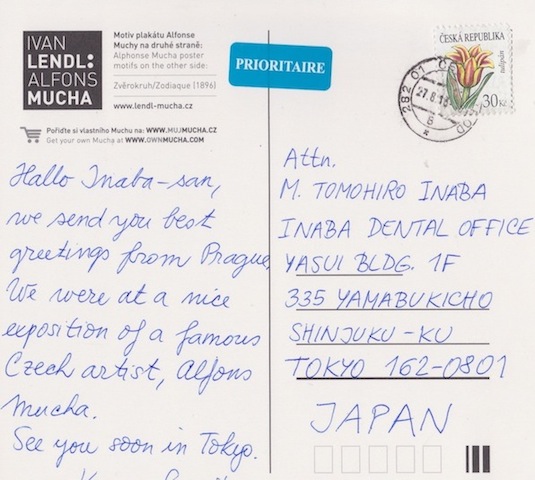 IVAN
LENDL:
ALFONS
MUCHA
Motiv plakátu Alfonse
Muchy na druhé straně:
Alphonse Mucha poster
motifs on the other side:
Zvěrokruh/Zodiaque (1896)
www.lendl-mucha.cz
Pořiďte si vlastního Muchu na: WWW.MUJMUCHA.CZ
Get your own Mucha at WWW.OWNMUCHA.COM
PRIORITAIRE
ČESKÁ REPUBLIKA
tulipán
30Kč
Hallo Inaba-san,
we send you best
greetings from Prague.
We were at a nice
exposition of a famous
Czech artist, Alfons
Mucha.
See you soon in Tokyo.
Attn.
M. TOMOHIRO INABA
INABA DENTAL OFFICE
YASUI BLDG. 1F
335 YAMABUKICHO
SHINJUKU-KU
TOKYO 162-0801
JAPAN